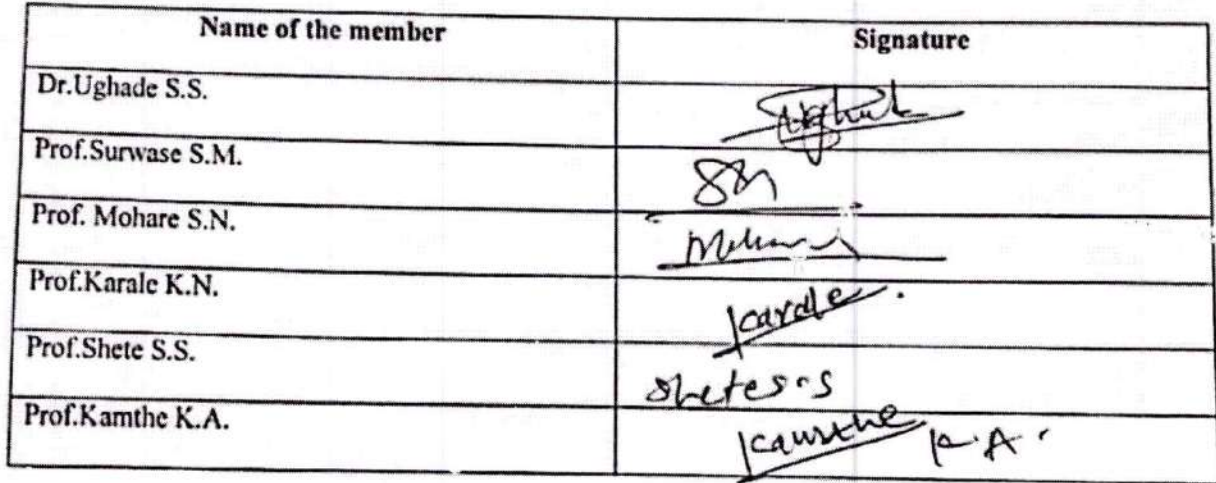 Name of the member Signature
Dr.Ughade S.S. Ughade
Prof.Surwase S.M. SM
Prof. Mohare S.N. Mohare
Prof.Karale K.N. Karale.
Prof.Shete S.S. Shete s.s
Prof.Kamthe K.A. Kamthe K.A.